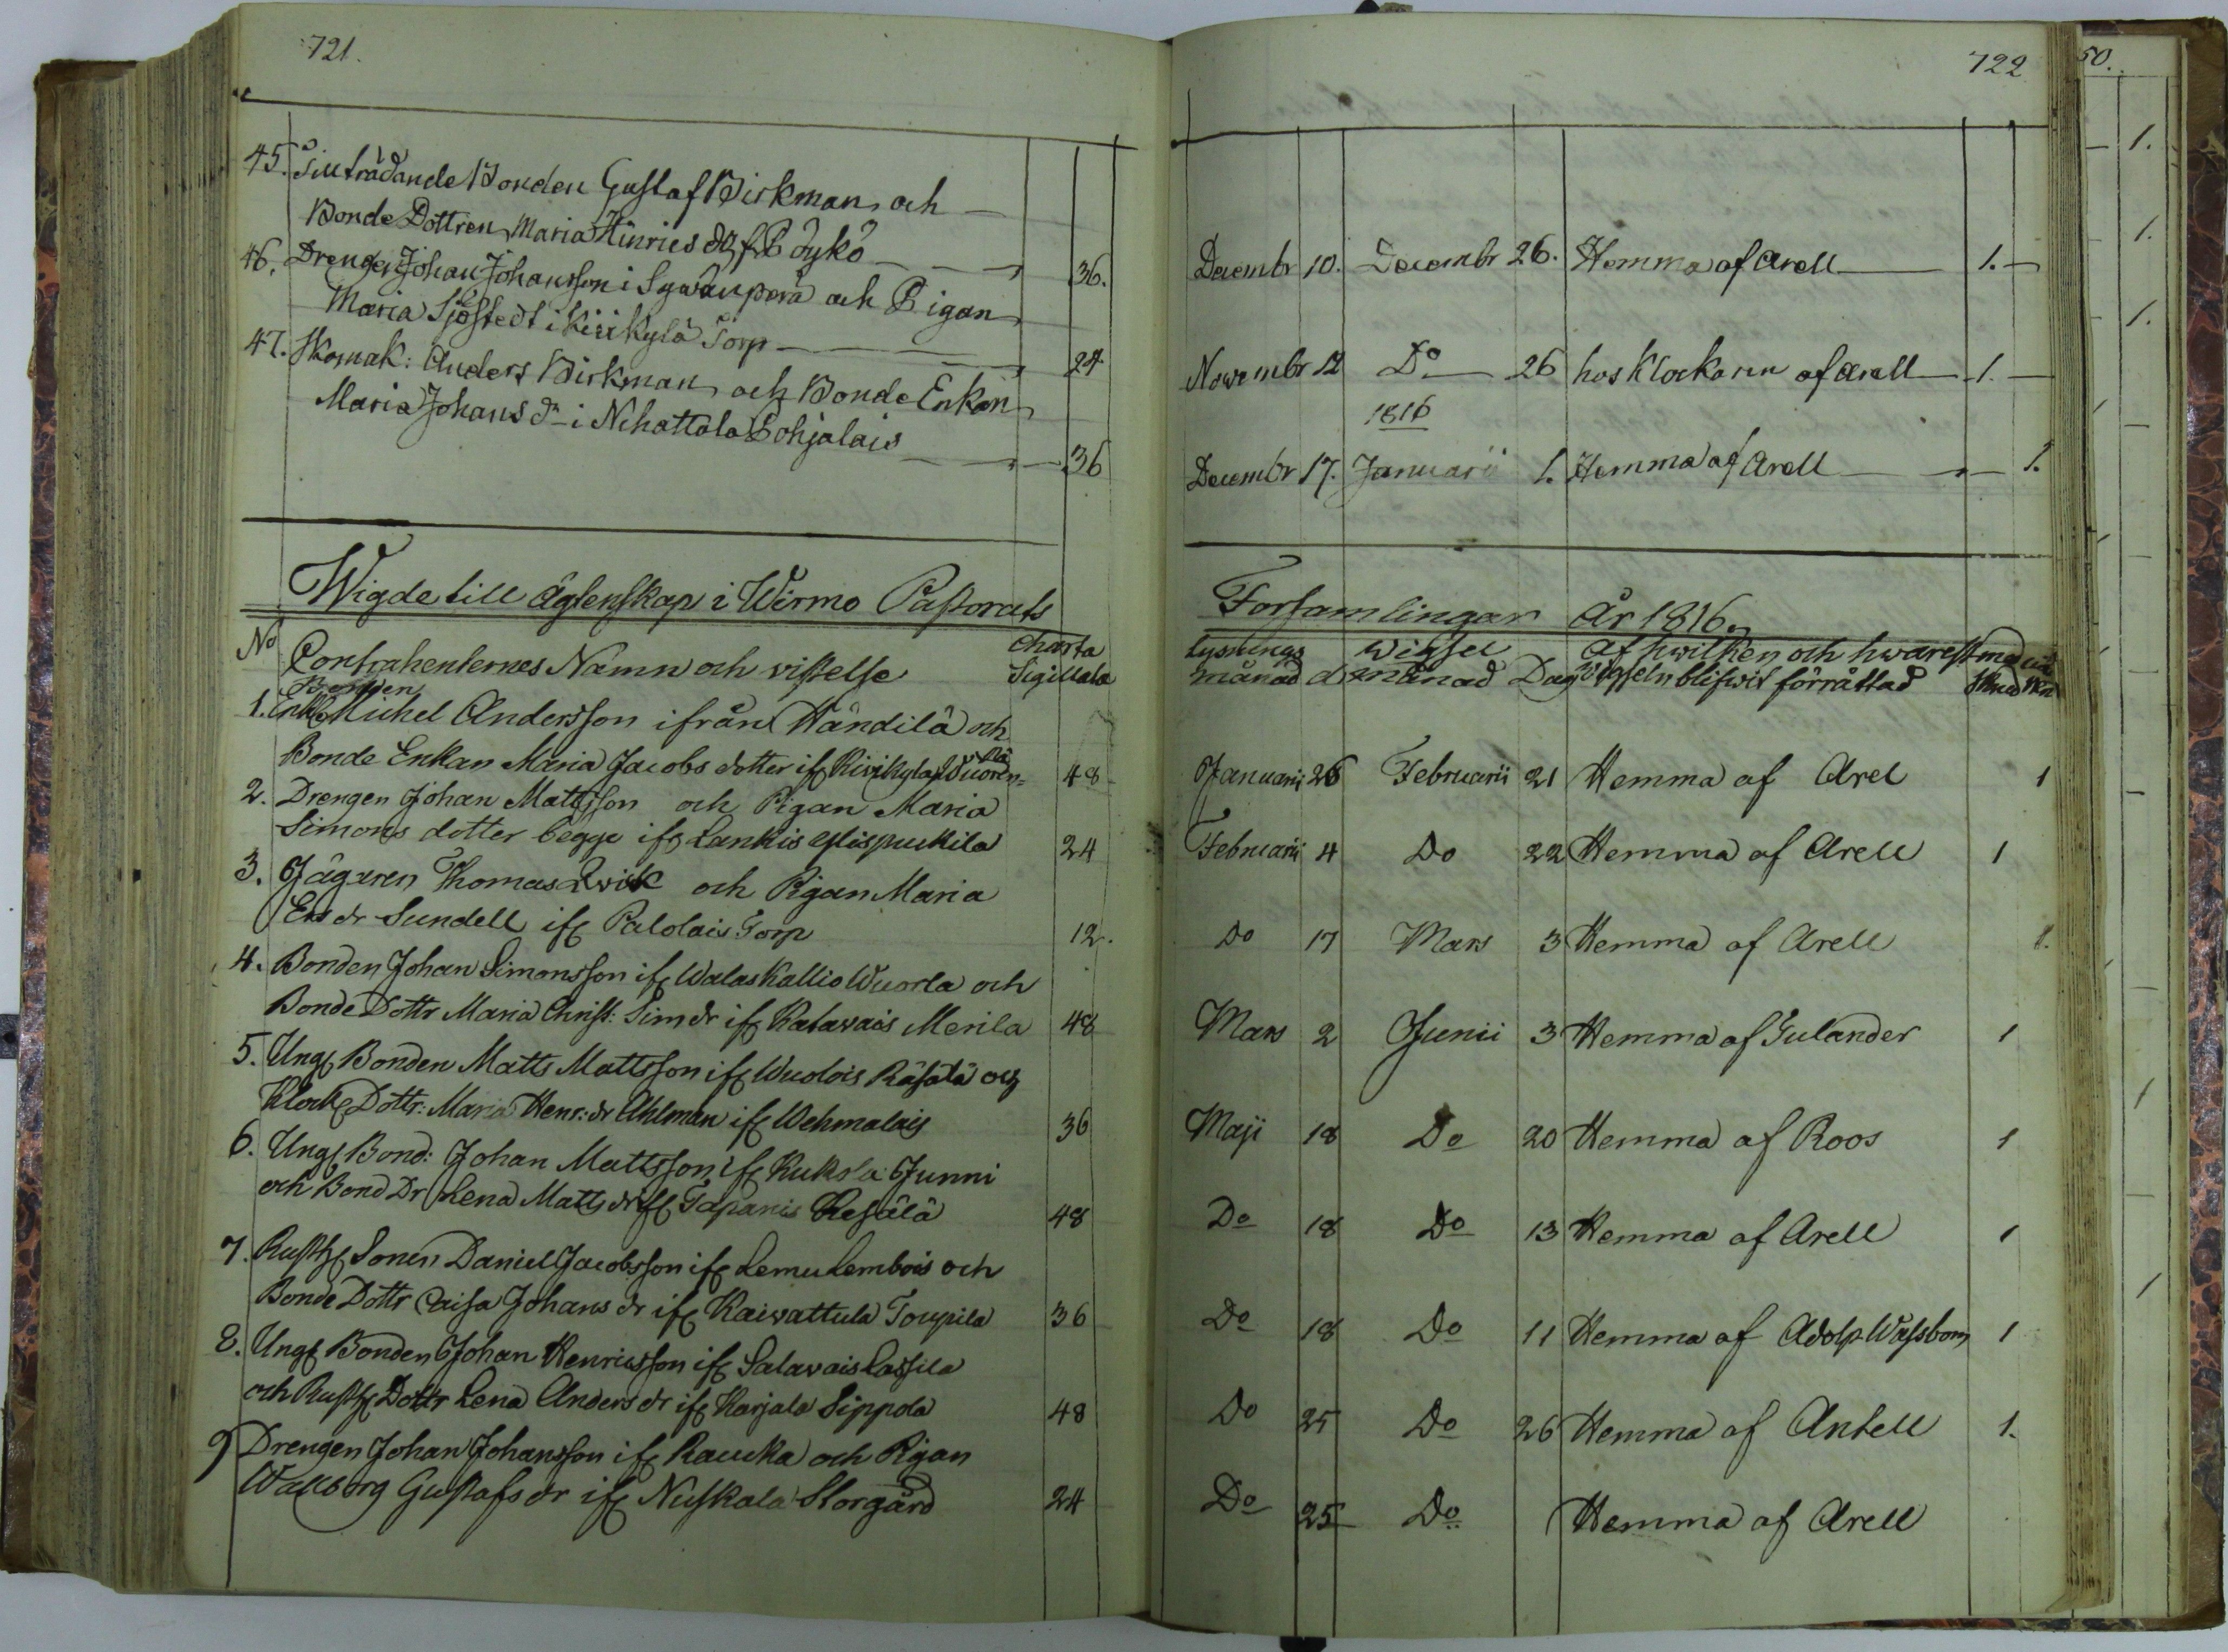 721.
45. Tillträdande Bonden Gustaf Birkman och
Bonde Dottren Maria Hinrics dr fr Pöykö 36.
46. Drengen Johan Johansson i Sywänperä och Pigan
Maria Sjöstedt i Kirikylä Torp 24
47. Skomak: Anders Birkman och Bonde Enkan
Maria Johans dr i Nihattula Pohjalais 36
Wigde till Ägtenskap i Wirmo Pastorats
No Contrahenternes Namn och vistelse Charta Sigillata
1. Enkl Bonden Michel Andersson ifrån Händilä och
Bonde Enkan Maria Jacobs dotter if Kirikylä Wuoren= pä 48
2. Drengen Johan Mattsson och Pigan Maria
Simons dotter begge if Lankis Ylispuckila 24
3. Jägaren Thomas Qvick och Pigan Maria
Ers dr Sundell if Palolais Torp 12.
4. Bonden Johan Simonsson if Walaskallio Wuorla och
Bonde Dottr Maria Christ: Sim dr if Katavais Merila 48
5. Ung Bonden Matts Mattsson if Wuolois Räsälä och
Klock Dottr: Maria Henr: dr Ahlman if Wehmalais 36
6. Ung Bond: Johan Mattsson if Kukola Junni
och Bond Dr Lena Matts dr if Tapanis Resälä 48
7. Rusth Sonen Daniel Jacobsson if Lemu Lembois och
Bonde Dottr Caisa Johans dr if Kaivattula Toupila 36
8. Ung Bonden Johan Henricsson if Salavais Lassila
och Rusth Dottr Lena Anders dr if Karjala Sippola 48
9 Drengen Johan Johansson if Raucka och Pigan
Wallborg Gustafs dr if Nuskala Storgård 24
722
Decembr 10. Decembr 26. Hemma af Arell 1.
Novembr 12 Do 26 hos Klockaren af Arell 1.
1816
Decembr 17. Januarii 1. Hemma af Arell 1.
Forsamlingar År 1816.
Lysnings Wigsel Af hwilken och hwarest
månad d månad Dag Wigseln blifwit förrättad
Januarii 26 Februarii 21 Hemma af Arel 1
Februarii 4 Do 22 Hemma af Arell 1
Do 17 Mars 3 Hemma af Arell 1.
Mars 2 Junii 3 Hemma af Gulander 1
Maji 18 Do 20 Hemma af Roos 1
Do 18 Do 13 Hemma af Arell 1
Do 18 Do 11 Hemma af Adolp Wassbom 1
Do 25 Do 26 Hemma af Antell 1.
Do 25 Do Hemma af Arell
50.
1.
1.
1.
1
1